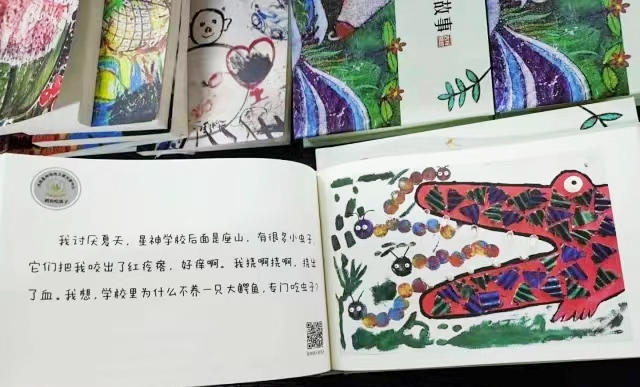 故事
我讨厌夏天，星神学校后面是座山，有很多小虫子，
它们把我咬出了红疙瘩，好痒啊。我挠啊挠啊，挠出
了血。我想，学校里为什么不养一只大鳄鱼，专门吃虫子？